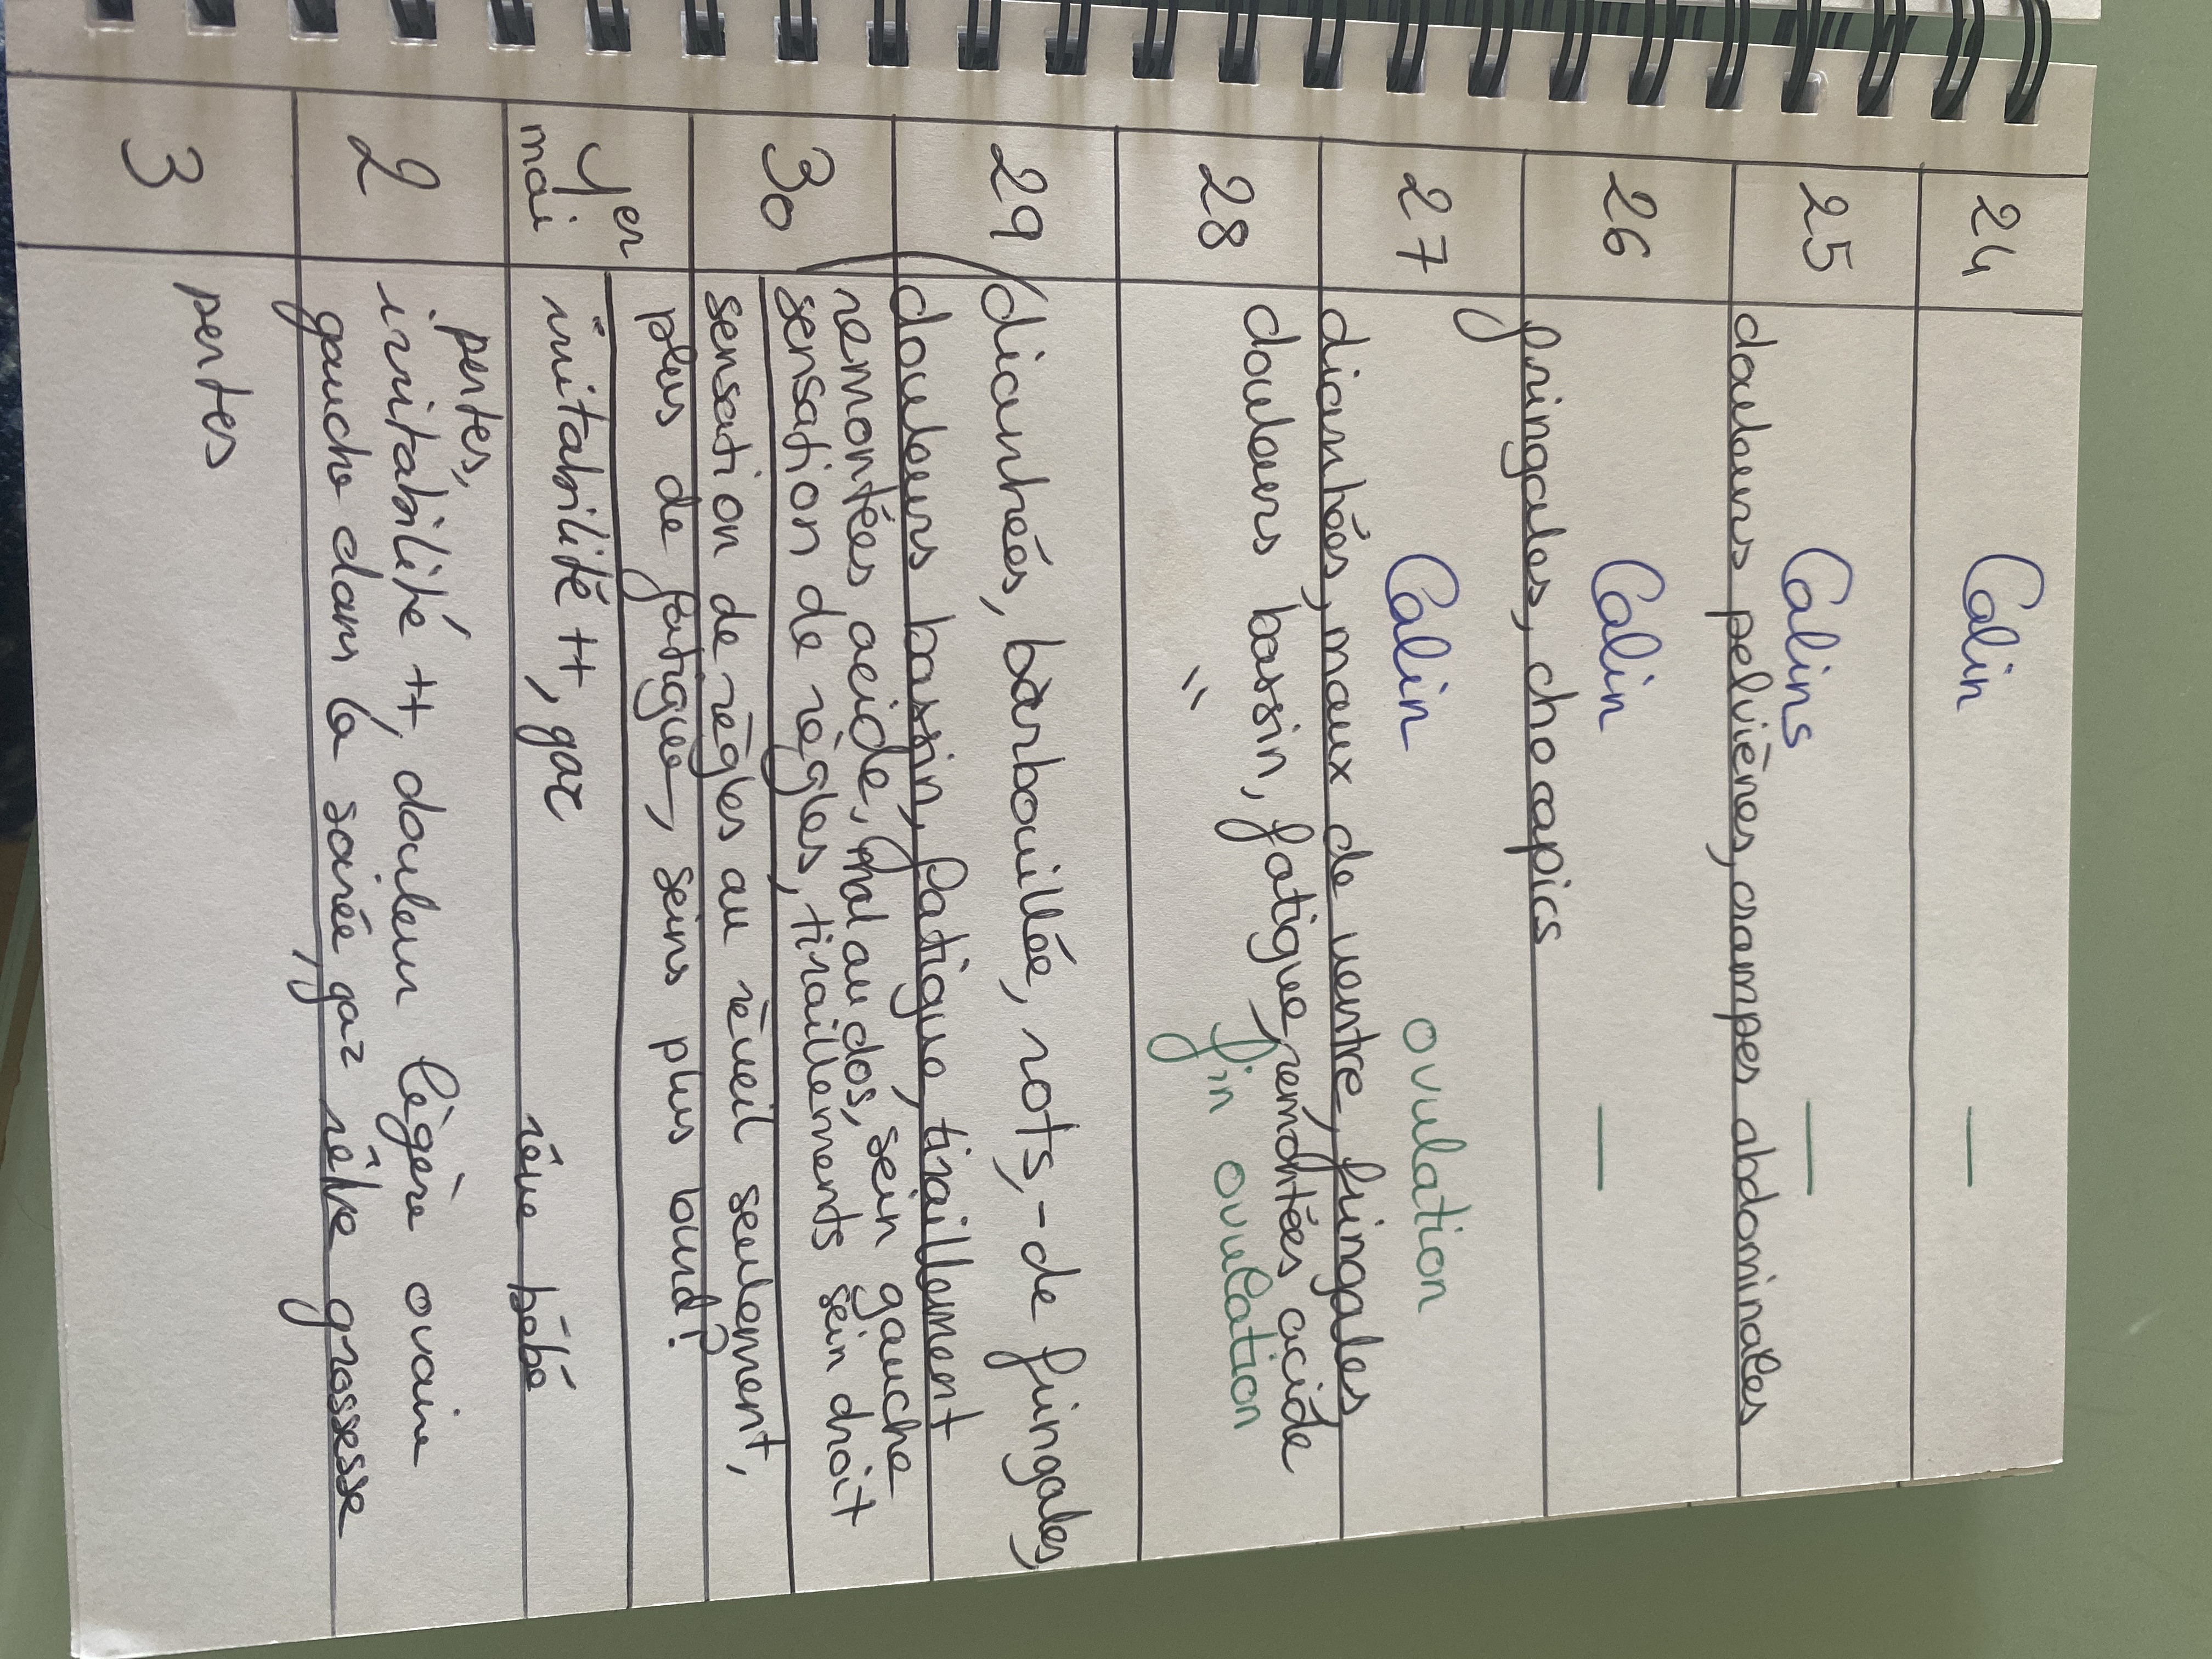 24 Calin —
25 Calins —
douleurs pelviènes, crampes abdominales
26 Calin —
fringales, chocapics
27 Calin ovulation
diarrhées, maux de ventre, fringales
douleurs bassin, fatigue, remontées acide
28 " fin ovulation
29 diarrhées, barbouillée, rots, - de fringales,
douleurs bassin, fatigue, tiraillement
remontées acide, mal au dos, sein gauche
30 sensation de règles, tiraillements sein droit
sensation de règles au réveil seulement,
plus de fatigue, seins plus lourd?
1er mai irritabilité ++, gaz rêve bébé
pertes,
2 irritabilité ++, douleur légère ovaire
gauche dans la soirée, gaz rêve grossesse
3 pertes